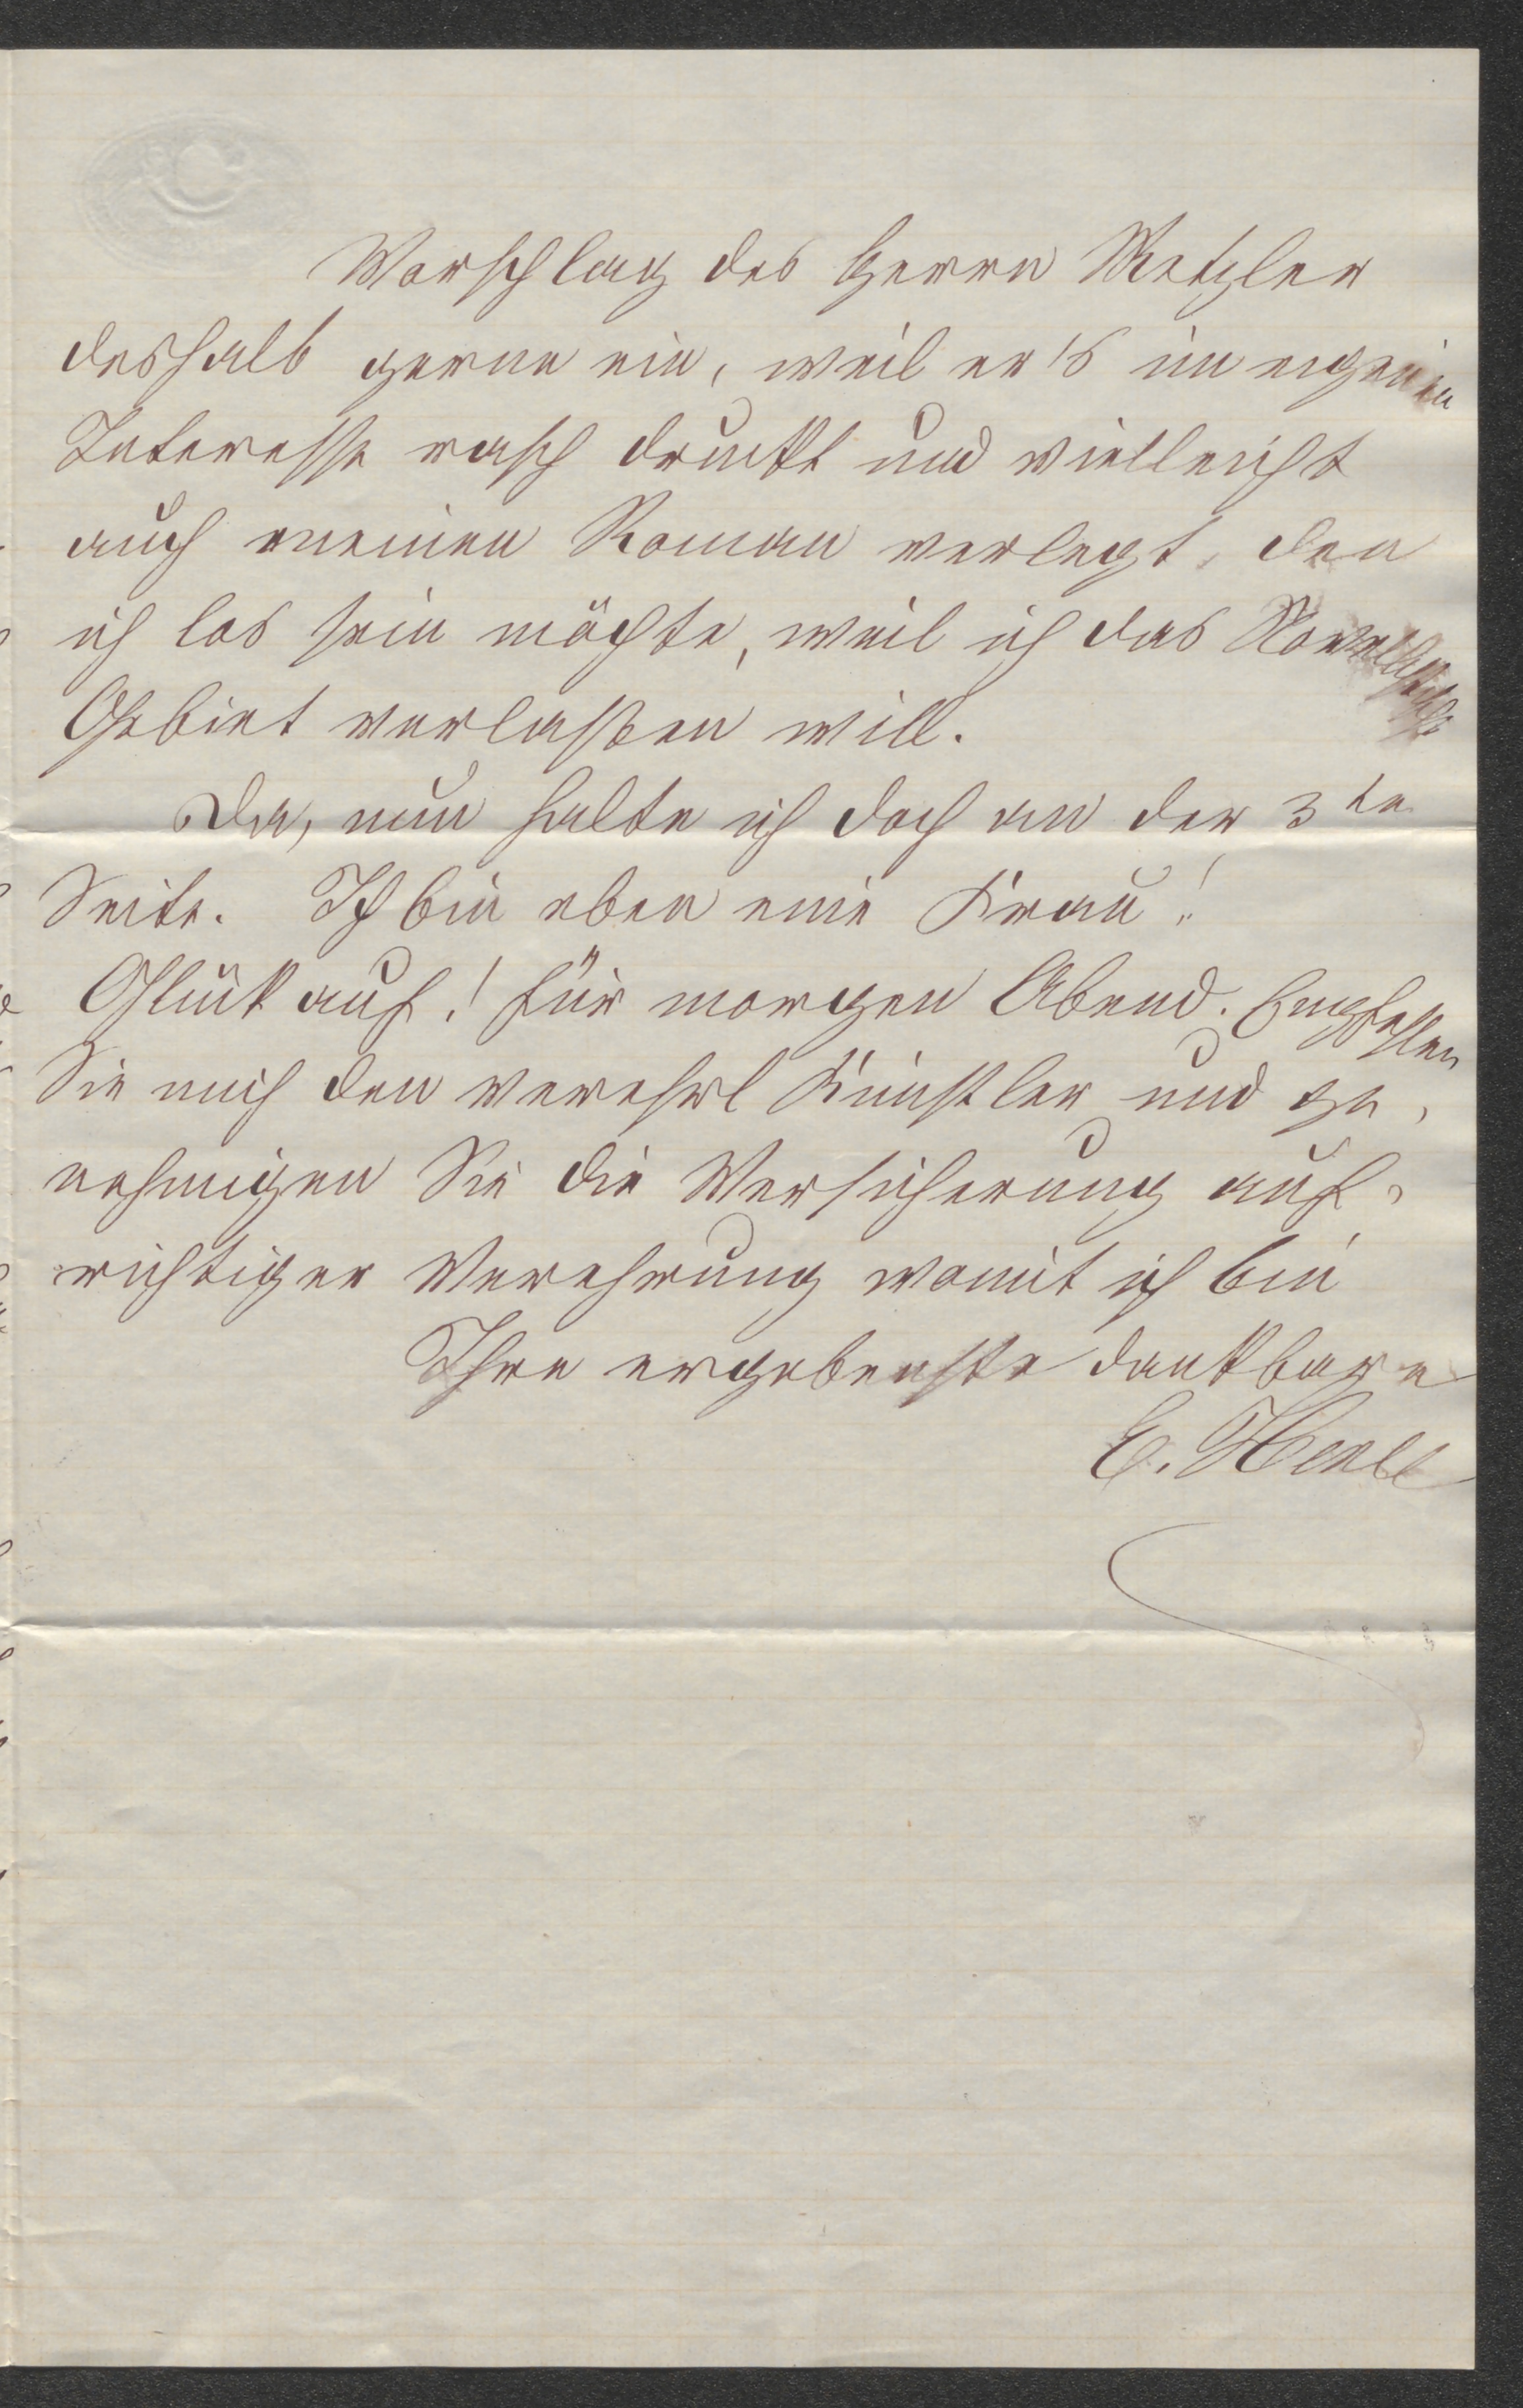 Vorschlag des Herrn Metzler
deshalb gerne ein, weil er's im eigenen
Interesse rasch druckt und vielleicht
auch meinen Roman verlegt, den
ich los sein möchte, weil ich das Novellistische
Gebiet verlaßen will.
Da, nun halte ich doch an der 3te
Seite. Ich bin eben eine Frau!
Glück auf! für morgen Abend. Empfehlen
Sie mich den verehrl Künstler und ge,
nehmigen Sie die Versicherung auf,
richtiger Verehrung womit ich bin
Ihre ergebenste dankbare
E. Henle